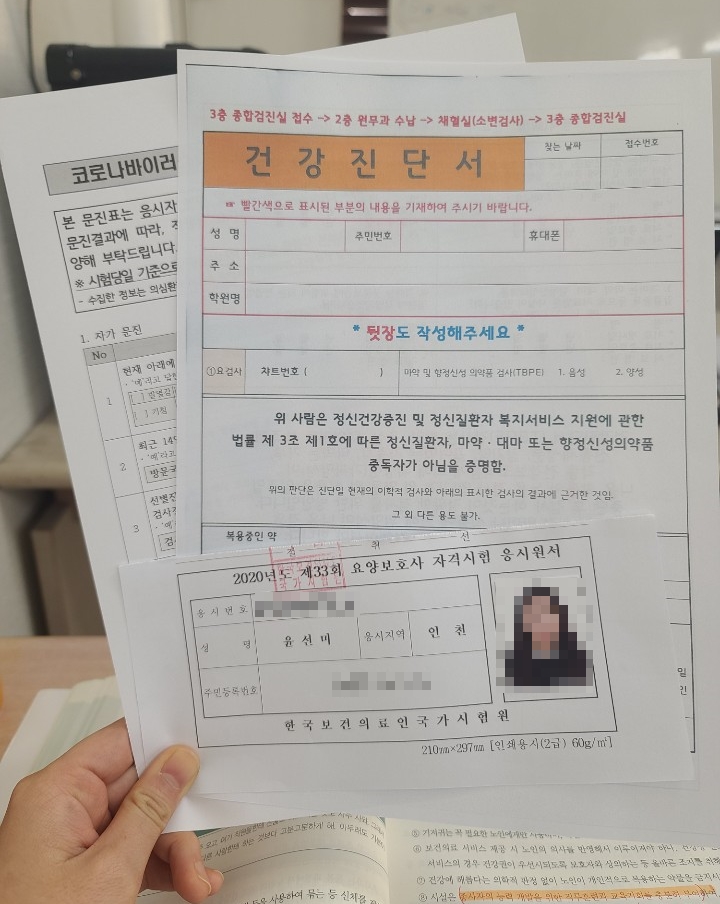 3층 종합검진실 접수 -> 2층 원무과 수납 -> 채혈실(소변검사) -> 3층 종합검진실
건강진단서
찾는 날짜
접수번호
☞ 빨간색으로 표시된 부분의 내용을 기재하여 주시기 바랍니다.
성 명
주민번호
휴대폰
주 소
학원명
* 뒷장도 작성해주세요 *
①요검사
차트번호 ( )
마약 및 향정신성 의약품 검사(TBPE)
1. 음성
2. 양성
위 사람은 정신건강증진 및 정신질환자 복지서비스 지원에 관한
법률 제 3조 제1호에 따른 정신질환자, 마약 · 대마 또는 향정신성의약품
중독자가 아님을 증명함.
위의 판단은 진단일 현재의 이학적 검사와 아래의 표시한 검사의 결과에 근거한 것임.
그 외 다른 용도 불가.
복용중인 약
코로나바이러
본 문진표는 응시자
문진결과에 따라,
양해 부탁드립니다.
※ 시험당일 기준으로
- 수집한 정보는 의심환
1. 자가 문진
No
1
현재 아래에
2
최근 14일
방문국
3
선별진
검사
절 취 선
2020년도 제33회 요양보호사 자격시험 응시원서
응시번호
성 명
윤선미
응시지역
인천
주민등록번호
한국보건의료인국가시험원
210㎜×297㎜ [인쇄용지(2급) 60g/㎡]
⑥ 보건의료 서비스 제공 시 노인의 의사를 반영해서 이루어져야 하나,
서비스의 경우 건강권이 우선시되도록 보호자와 상의하는 등 올바른 조치를 취해
⑦ 건강에 해롭다는 의학적 판정 없이 노인이 개인적으로 복용하는 약물을 금지시
⑧ 시설은 종사자의 능력 개발을 위한 직무훈련과 교육기회를 충분히